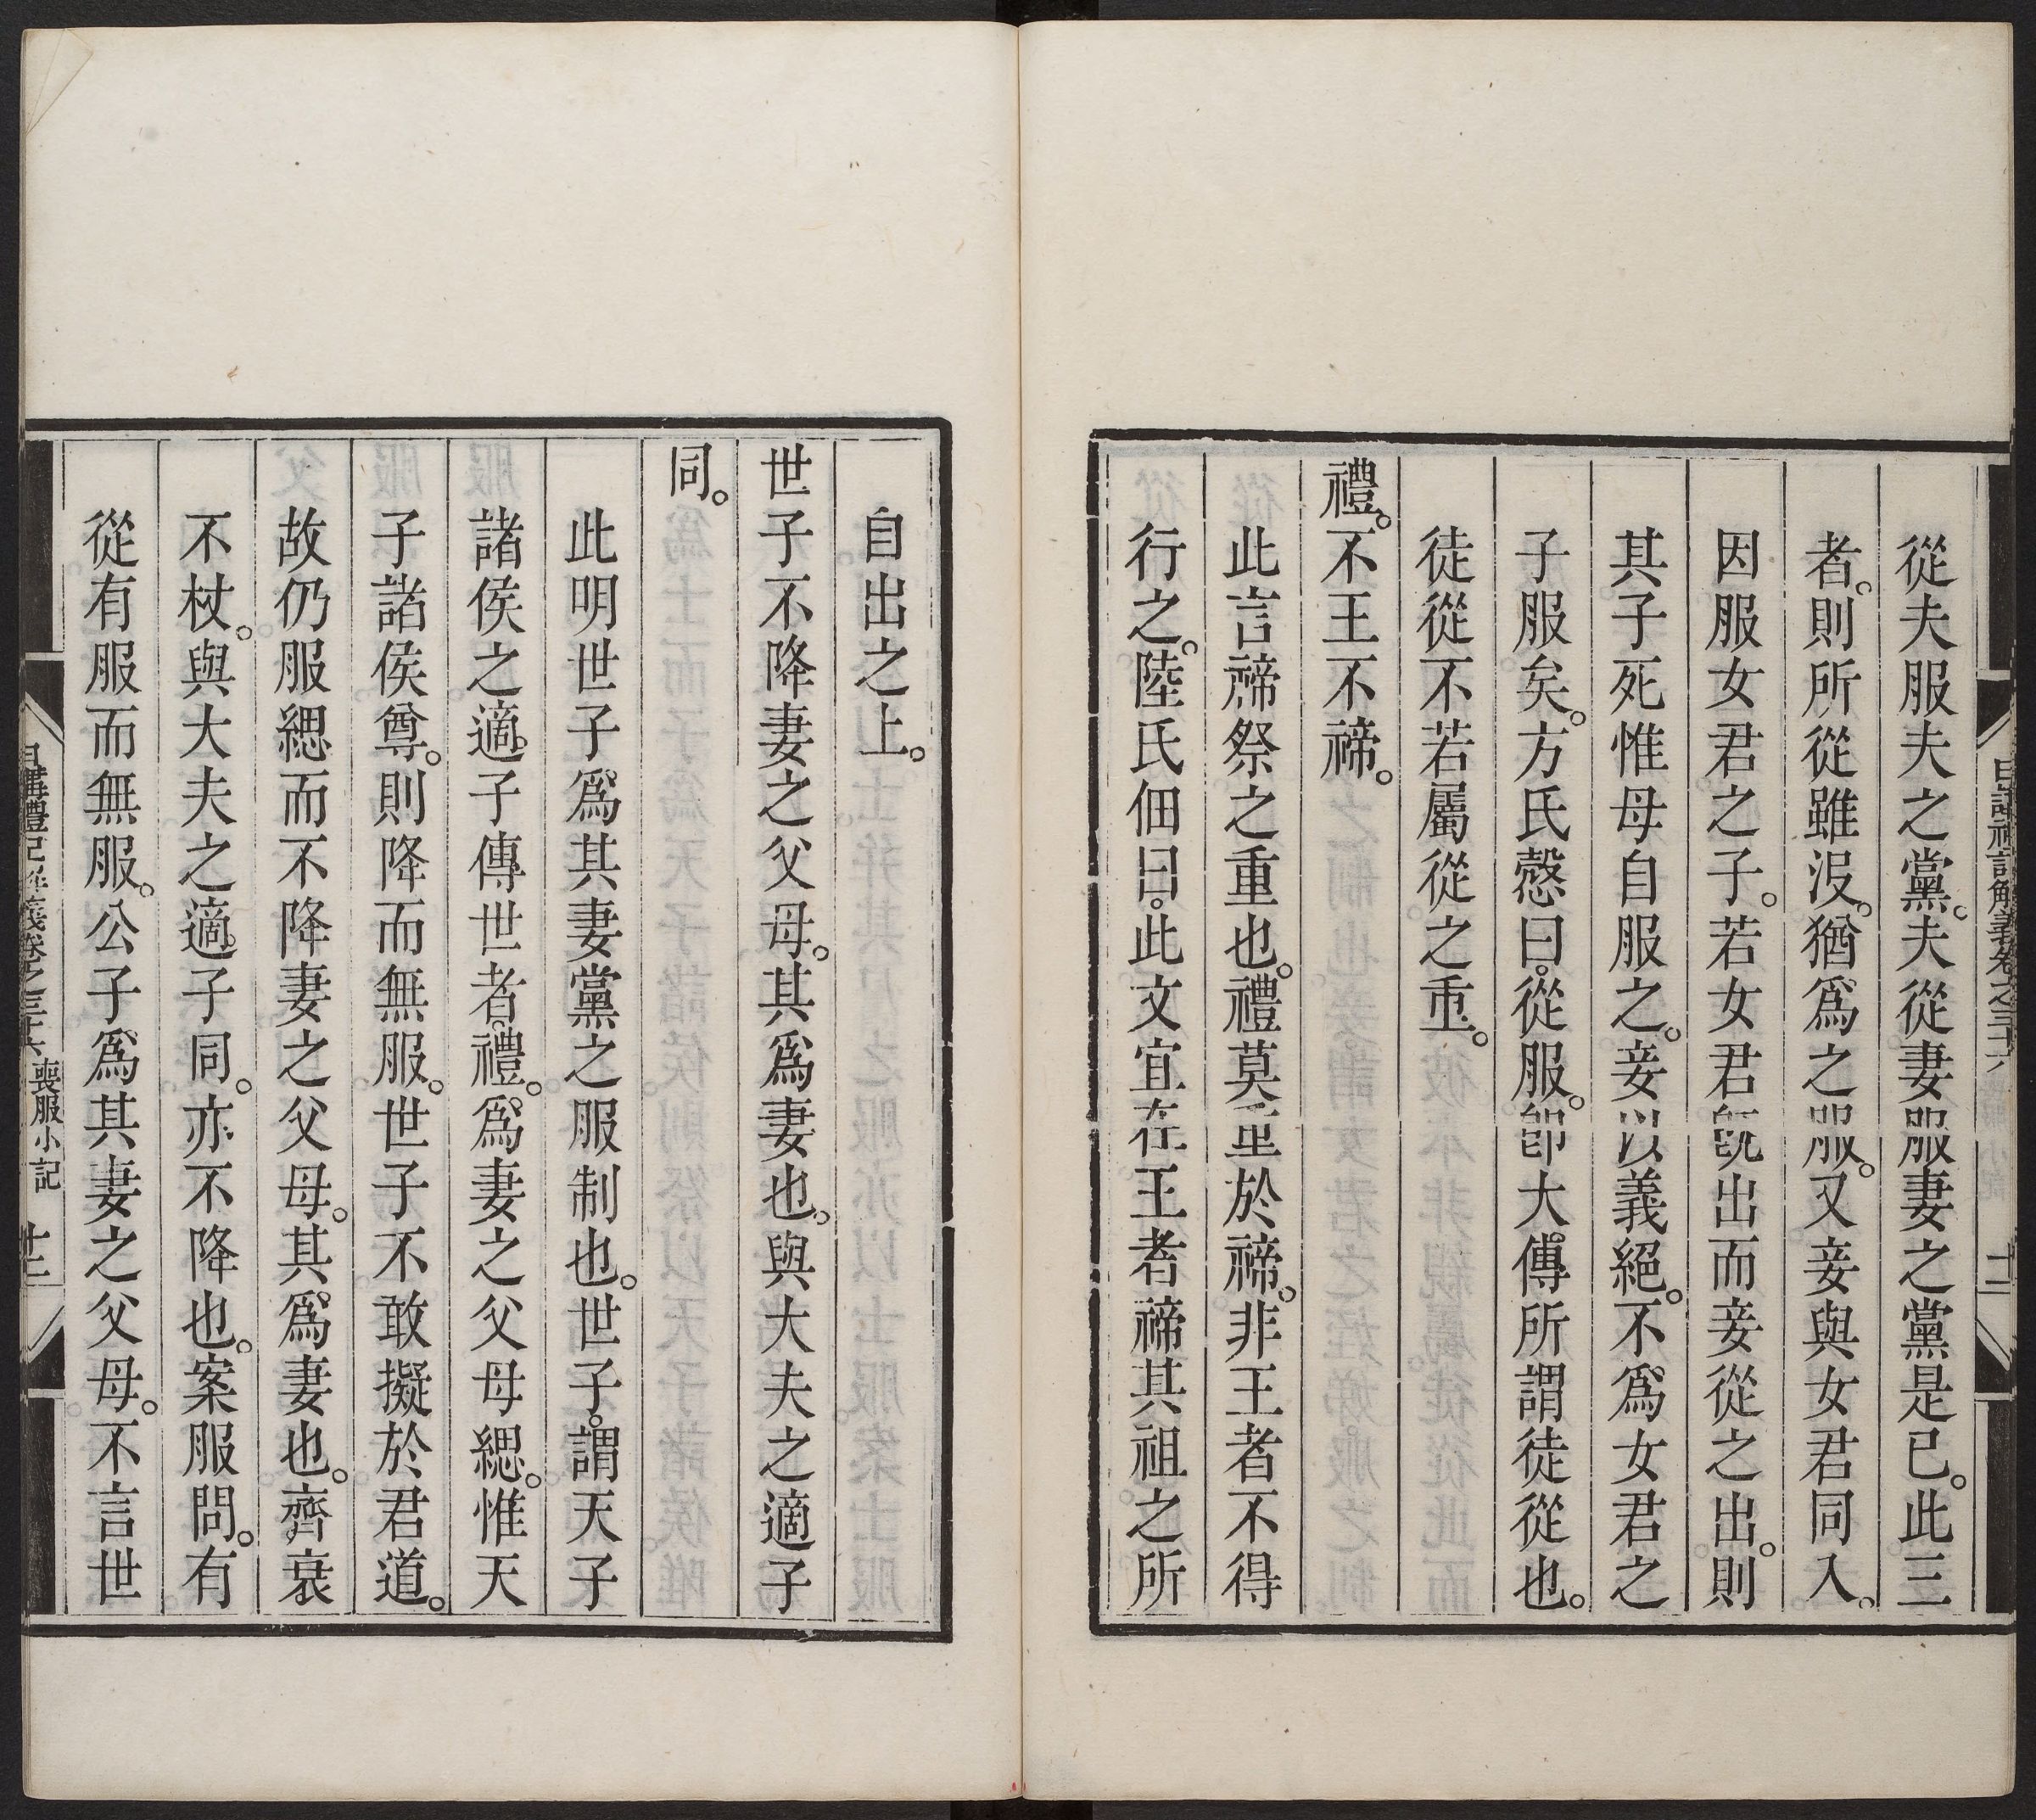 從夫服夫之黨。夫從妻服妻之黨是已。此三
者。則所從雖沒。猶爲之服。又妾與女君同入。
因服女君之子。若女君旣出而妾從之出。則
其子死惟母自服之。妾以義絕。不爲女君之
子服矣。方氏慤曰。從服。卽大傳所謂徒從也。
徒從不若屬從之重。
禮。不王不禘。
此言禘祭之重也。禮莫重於禘。非王者不得
行之。陸氏佃曰。此文宜在王者禘其祖之所
日講禮記解義卷之三十六
十二
自出之上。
世子不降妻之父母。其爲妻也。與大夫之適子
同。
此明世子爲其妻黨之服制也。世子。謂天子
諸侯之適子傳世者。禮。爲妻之父母緦。惟天
子諸侯尊。則降而無服。世子不敢擬於君道。
故仍服緦而不降妻之父母。其爲妻也。齊衰
不杖。與大夫之適子同。亦不降也。案服問。有
從有服而無服。公子爲其妻之父母。不言世
日講禮記解義卷之三十六 喪服小記 十三